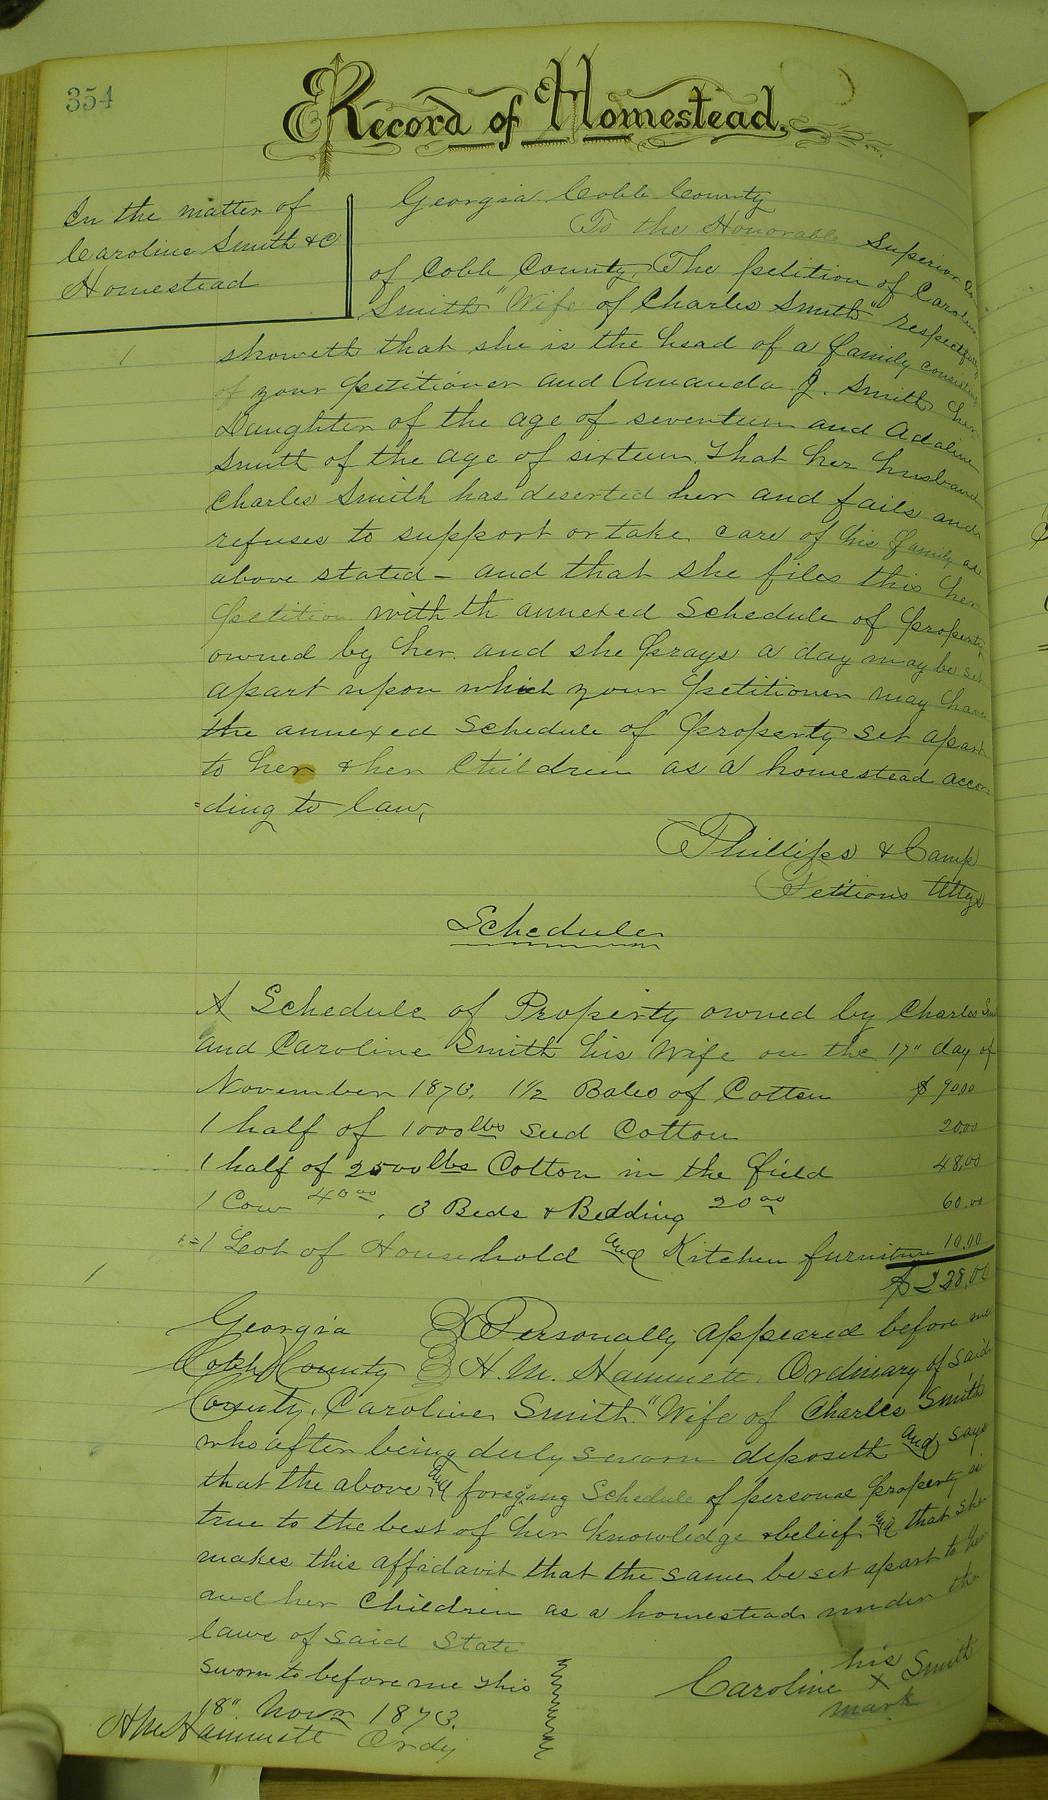 354
Record of Homestead.
In the matter of
Caroline Smith &C
Homestead
Georgia Cobb County
To the Honorable Superior Co
of Cobb County, The petition of Caroline
Smith "Wife of Charles Smith" respectfully
1
showeth that she is the head of a family consisting
of your petitioner and Amanda J. Smith her
Daughter of the age of seventeen and Adaline
Smith of the age of sixteen. That her husband
Charles Smith has deserted her and fails and
refuses to support or take care of his family as
above stated - and that she files this her
petition with th annexed Schedule of property
owned by her. and she prays a day may be set
apart upon which your petitioner may have
the annexed Schedule of property set apart
to her & her Children as a homestead accor
=ding to law,
Phillips & Camp
Petitions Attys
Schedule
A Schedule of Property owned by Charles Smi
and Caroline Smith his Wife on the 17" day of
November 1873, 1 1/2 Bales of Cotton $ 90.00
1 half of 1000 lbs seed Cotton 20.00
1 half of 2500 lbs Cotton in the field 48.00
1 Cow 40 00, 3 Beds & Bedding 20 00 60.00
1 Lot of Household and Kitchen furniture 10.00
$ 228.00
1
Georgia Personally appeared before me
Cobb County H. M. Hammett, Ordinary of said
County, Caroline Smith "Wife of Charles Smith
who after being duly sworn deposeth and says
that the above and foregoing Schedule of personal property is
true to the best of her knowledge & belief and that she
makes this affidavit that the same be set apart to her
and her Children as a homestead under the
laws of said State
Sworn to before me this
18" Novr 1873.
H M Hammett Ordy
his
Caroline x Smith
mark